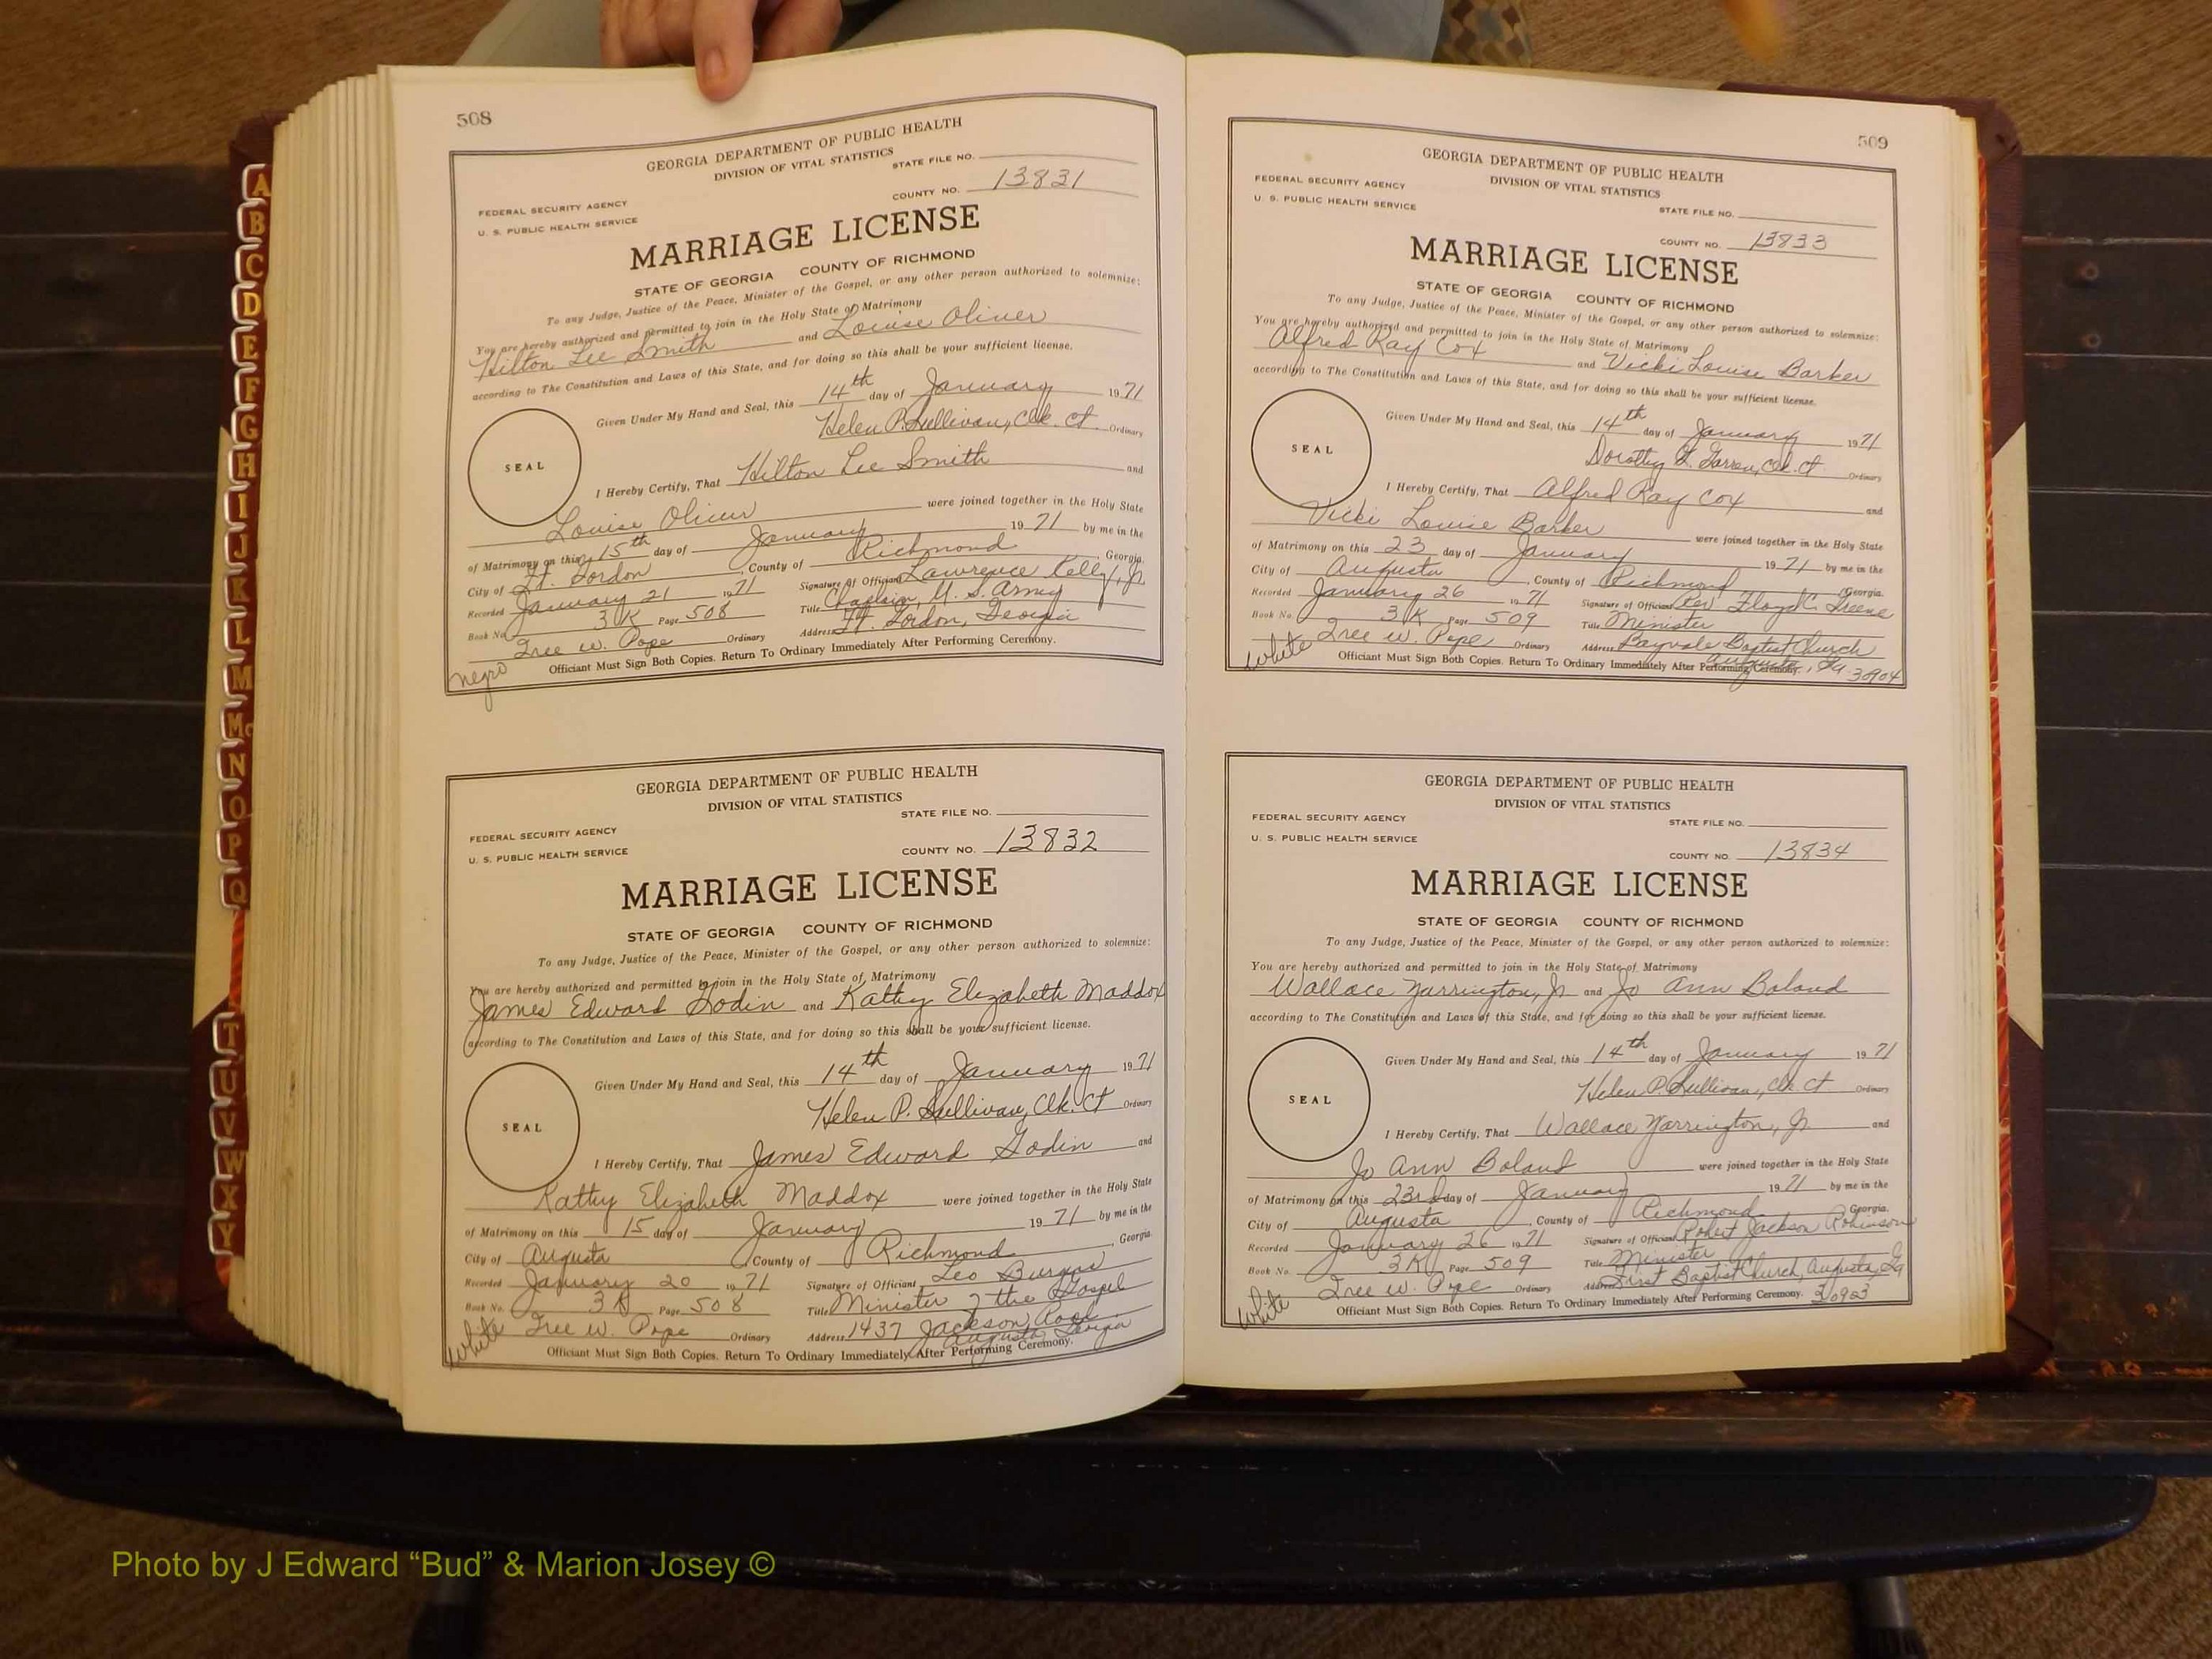 508
GEORGIA DEPARTMENT OF PUBLIC HEALTH
DIVISION OF VITAL STATISTICS
STATE FILE NO.
COUNTY NO. 13831
FEDERAL SECURITY AGENCY
U. S. PUBLIC HEALTH SERVICE
MARRIAGE LICENSE
STATE OF GEORGIA COUNTY OF RICHMOND
To any Judge, Justice of the Peace, Minister of the Gospel, or any other person authorized to solemnize:
You are hereby authorized and permitted to join in the Holy State of Matrimony
Hilton Lee Smith and Louise Oliver
according to The Constitution and Laws of this State, and for doing so this shall be your sufficient license.
Given Under My Hand and Seal, this 14th day of January 1971
Helen P. Sullivan, Clk. Ct. Ordinary
SEAL
I Hereby Certify, That Hilton Lee Smith and
Louise Oliver were joined together in the Holy State
of Matrimony on this 15th day of January 1971 by me in the
City of Ft. Gordon, County of Richmond, Georgia.
Recorded January 21 1971 Signature of Official Lawrence Kelly, Jr.
Book No. 3K Page 508 Title Chaplain, U. S. Army
Tree W. Pope Ordinary Address Ft. Gordon, Georgia
negro
Officiant Must Sign Both Copies. Return To Ordinary Immediately After Performing Ceremony.
GEORGIA DEPARTMENT OF PUBLIC HEALTH
DIVISION OF VITAL STATISTICS
STATE FILE NO.
FEDERAL SECURITY AGENCY
U. S. PUBLIC HEALTH SERVICE
COUNTY NO. 13832
MARRIAGE LICENSE
STATE OF GEORGIA COUNTY OF RICHMOND
To any Judge, Justice of the Peace, Minister of the Gospel, or any other person authorized to solemnize:
You are hereby authorized and permitted to join in the Holy State of Matrimony
James Edward Godin and Kathy Elizabeth Maddox
according to The Constitution and Laws of this State, and for doing so this shall be your sufficient license.
Given Under My Hand and Seal, this 14th day of January 1971
Helen P. Sullivan, Clk. Ct Ordinary
SEAL
I Hereby Certify, That James Edward Godin and
Kathy Elizabeth Maddox were joined together in the Holy State
of Matrimony on this 15 day of January 1971 by me in the
City of Augusta County of Richmond, Georgia
Recorded January 20 1971 Signature of Official Leo Burgas
Book No. 3K Page 508 Title Minister of the Gospel
Tree W. Pope Ordinary Address 1437 Jackson Road
Augusta Georgia
White
Officiant Must Sign Both Copies. Return To Ordinary Immediately After Performing Ceremony.
509
GEORGIA DEPARTMENT OF PUBLIC HEALTH
DIVISION OF VITAL STATISTICS
FEDERAL SECURITY AGENCY
U. S. PUBLIC HEALTH SERVICE
STATE FILE NO.
COUNTY NO. 13833
MARRIAGE LICENSE
STATE OF GEORGIA COUNTY OF RICHMOND
To any Judge, Justice of the Peace, Minister of the Gospel, or any other person authorized to solemnize:
You are hereby authorized and permitted to join in the Holy State of Matrimony
Alfred Ray Cox and Vicki Louise Barker
according to The Constitution and Laws of this State, and for doing so this shall be your sufficient license.
Given Under My Hand and Seal, this 14th day of January 1971
Dorothy Clk. Ct Ordinary
SEAL
I Hereby Certify, That Alfred Ray Cox and
Vicki Louise Barker were joined together in the Holy State
of Matrimony on this 23 day of January 1971 by me in the
City of Augusta, County of Richmond, Georgia.
Recorded January 26 1971 Signature of Official Rev Floyd C. Greene
Book No. 3K Page 509 Title Minister
Tree W. Pope Ordinary Address Bayvale Baptist Church
Augusta, Ga. 30904
White
Officiant Must Sign Both Copies. Return To Ordinary Immediately After Performing Ceremony.
GEORGIA DEPARTMENT OF PUBLIC HEALTH
DIVISION OF VITAL STATISTICS
FEDERAL SECURITY AGENCY
STATE FILE NO.
U. S. PUBLIC HEALTH SERVICE
COUNTY NO. 13834
MARRIAGE LICENSE
STATE OF GEORGIA COUNTY OF RICHMOND
To any Judge, Justice of the Peace, Minister of the Gospel, or any other person authorized to solemnize:
You are hereby authorized and permitted to join in the Holy State of Matrimony
Wallace Yarrington, Jr. and Jo Ann Boland
according to The Constitution and Laws of this State, and for doing so this shall be your sufficient license.
Given Under My Hand and Seal, this 14th day of January 1971
Helen P. Sullivan, Clk Ct Ordinary
SEAL
I Hereby Certify, That Wallace Yarrington, Jr. and
Jo Ann Boland were joined together in the Holy State
of Matrimony on this 23rd day of January 1971 by me in the
City of Augusta, County of Richmond, Georgia.
Recorded January 26 1971 Signature of Official Robert Jackson Robinson
Book No. 3K Page 509 Title Minister
Tree W. Pope Ordinary Address First Baptist Church, Augusta, Ga
30903
White
Officiant Must Sign Both Copies. Return To Ordinary Immediately After Performing Ceremony.
A
B
C
D
E
F
G
H
I
J
K
L
M
Mc
N
O
P
Q
T
U
V
W
X
Y
Photo by J Edward “Bud” & Marion Josey ©